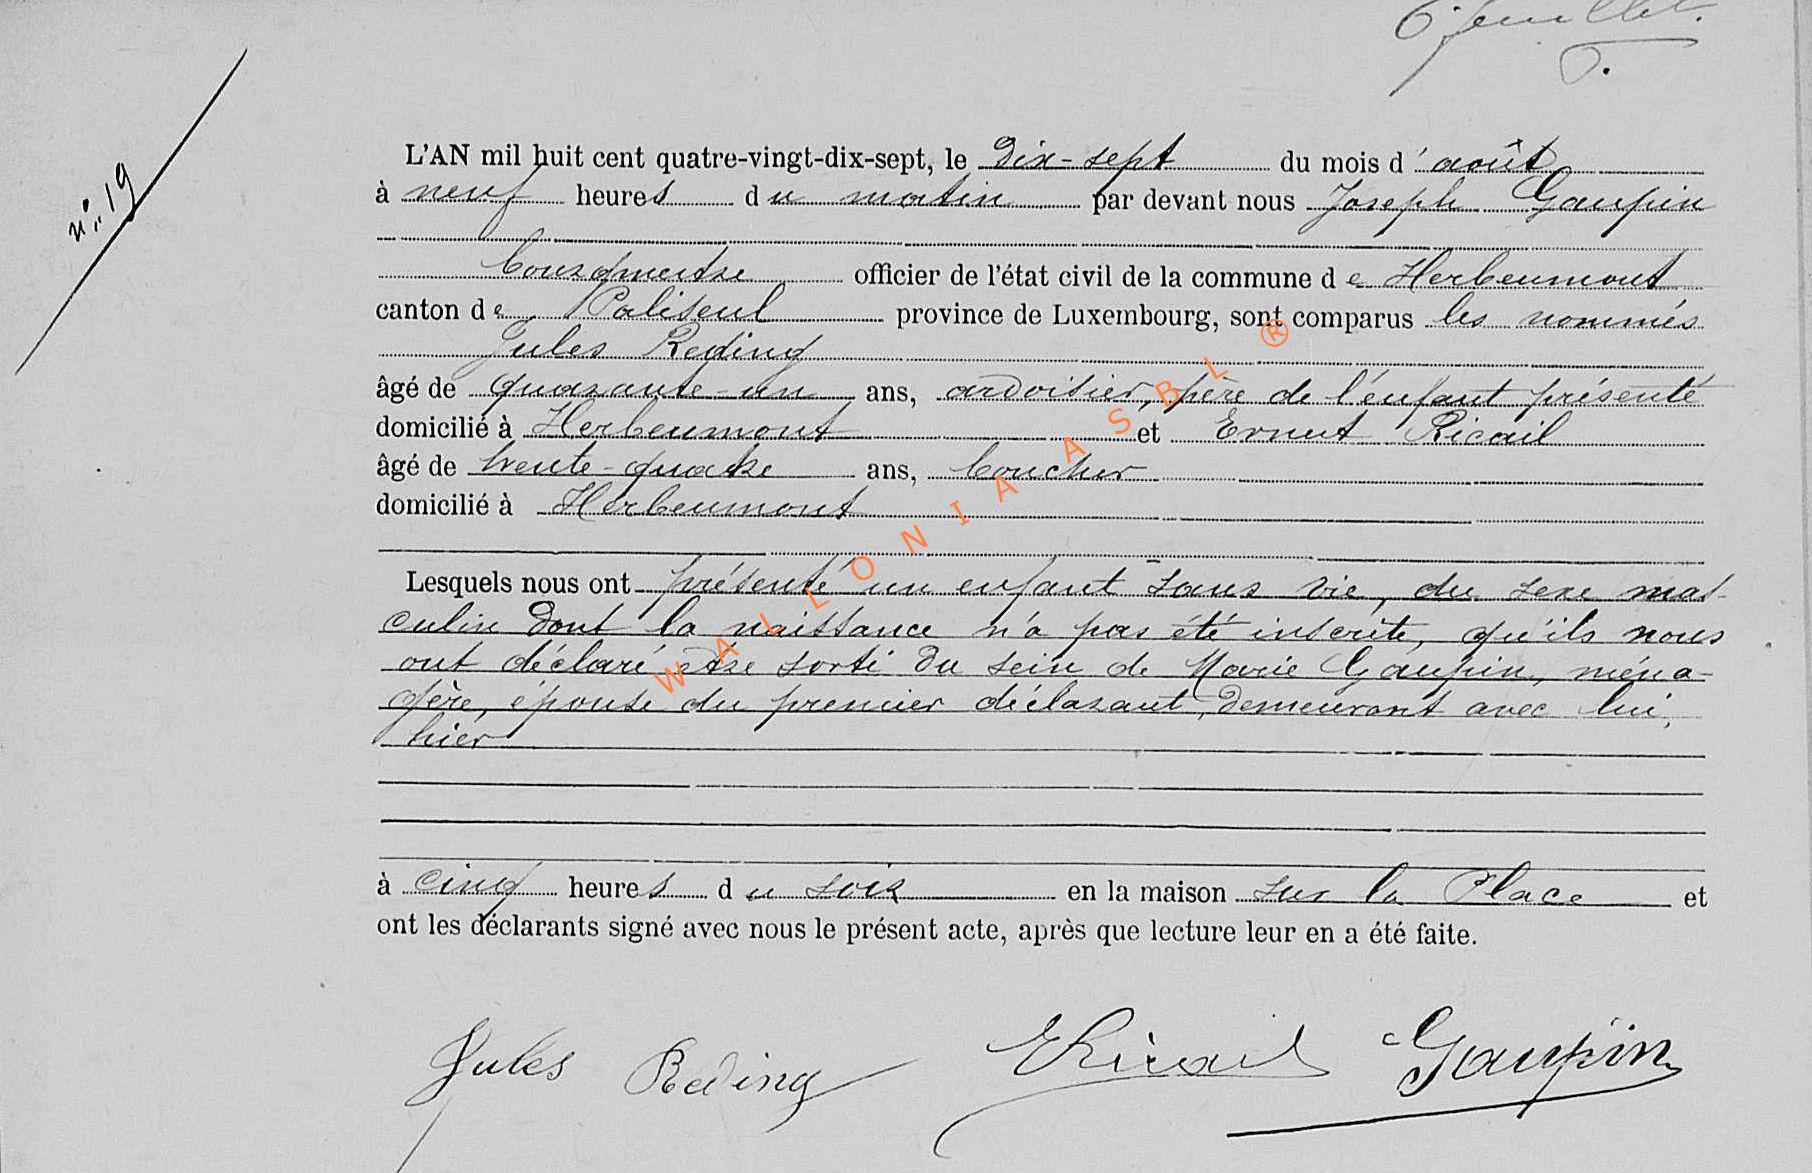 6e feuillet.
n° 19
L'AN mil huit cent quatre-vingt-dix-sept, le Dix-sept du mois d'août
à neuf heures du matin par devant nous Joseph Gaupin
Bourgmestre officier de l'état civil de la commune de Herbeumont
canton de Paliseul province de Luxembourg, sont comparus les nommés
Jules Reding
âgé de quarante-un ans, ardoisier, père de l'enfant présenté
domicilié à Herbeumont et Ernest Ricail
âgé de trente-quatre ans, boucher
domicilié à Herbeumont
Lesquels nous ont présenté un enfant sans vie, du sexe mas-
culin dont la naissance n'a pas été inscrite, qu'ils nous
ont déclaré être sorti du sein de Marie Gaupin, ména-
gère, épouse du premier déclarant, demeurant avec lui,
hier
à cinq heures du soir en la maison sur la Place et
ont les déclarants signé avec nous le présent acte, après que lecture leur en a été faite.
Jules Reding ERicail Gaupin
WALLONIA ASBL ®